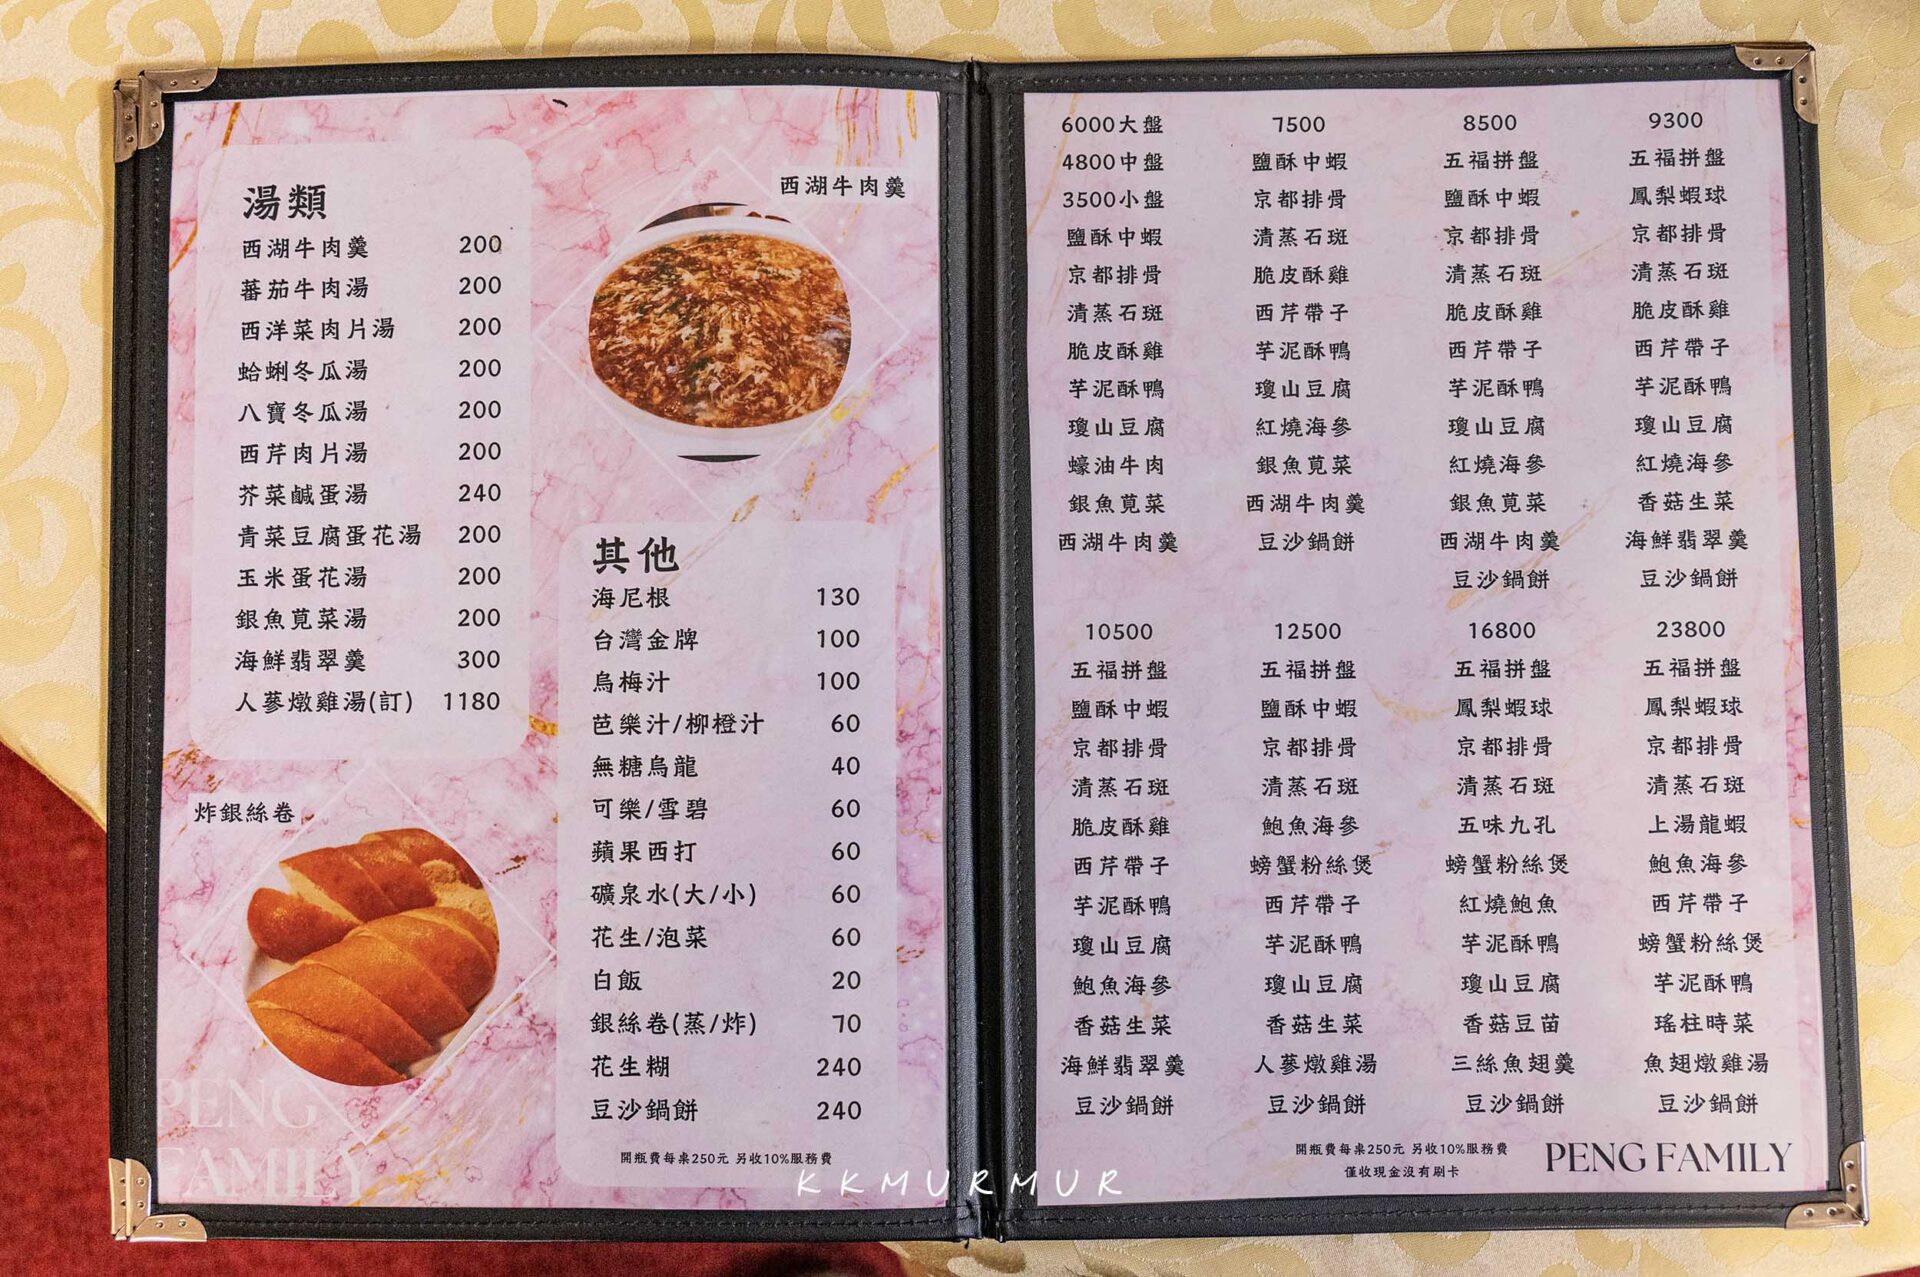 湯類
西湖牛肉羹 200
蕃茄牛肉湯 200
西洋菜肉片湯 200
蛤蜊冬瓜湯 200
八寶冬瓜湯 200
西芹肉片湯 200
芥菜鹹蛋湯 240
青菜豆腐蛋花湯 200
玉米蛋花湯 200
銀魚莧菜湯 200
海鮮翡翠羹 300
人蔘燉雞湯(訂) 1180
西湖牛肉羹
炸銀絲卷
PENG
FAMILY
其他
海尼根 130
台灣金牌 100
烏梅汁 100
芭樂汁/柳橙汁 60
無糖烏龍 40
可樂/雪碧 60
蘋果西打 60
礦泉水(大/小) 60
花生/泡菜 60
白飯 20
銀絲卷(蒸/炸) 70
花生糊 240
豆沙鍋餅 240
開瓶費每桌250元 另收10%服務費
6000大盤
4800中盤
3500小盤
鹽酥中蝦
京都排骨
清蒸石斑
脆皮酥雞
芋泥酥鴨
瓊山豆腐
蠔油牛肉
銀魚莧菜
西湖牛肉羹
7500
鹽酥中蝦
京都排骨
清蒸石斑
脆皮酥雞
西芹帶子
芋泥酥鴨
瓊山豆腐
紅燒海參
銀魚莧菜
西湖牛肉羹
豆沙鍋餅
8500
五福拼盤
鹽酥中蝦
京都排骨
清蒸石斑
脆皮酥雞
西芹帶子
芋泥酥鴨
瓊山豆腐
紅燒海參
銀魚莧菜
西湖牛肉羹
豆沙鍋餅
9300
五福拼盤
鳳梨蝦球
京都排骨
清蒸石斑
脆皮酥雞
西芹帶子
芋泥酥鴨
瓊山豆腐
紅燒海參
香菇生菜
海鮮翡翠羹
豆沙鍋餅
10500
五福拼盤
鹽酥中蝦
京都排骨
清蒸石斑
脆皮酥雞
西芹帶子
芋泥酥鴨
瓊山豆腐
鮑魚海參
香菇生菜
海鮮翡翠羹
豆沙鍋餅
12500
五福拼盤
鹽酥中蝦
京都排骨
清蒸石斑
鮑魚海參
螃蟹粉絲煲
西芹帶子
芋泥酥鴨
瓊山豆腐
香菇生菜
人蔘燉雞湯
豆沙鍋餅
16800
五福拼盤
鳳梨蝦球
京都排骨
清蒸石斑
五味九孔
螃蟹粉絲煲
紅燒鮑魚
芋泥酥鴨
瓊山豆腐
香菇豆苗
三絲魚翅羹
豆沙鍋餅
23800
五福拼盤
鳳梨蝦球
京都排骨
清蒸石斑
上湯龍蝦
鮑魚海參
西芹帶子
螃蟹粉絲煲
芋泥酥鴨
瑤柱時菜
魚翅燉雞湯
豆沙鍋餅
開瓶費每桌250元 另收10%服務費
僅收現金沒有刷卡
PENG FAMILY
KKMURMUR